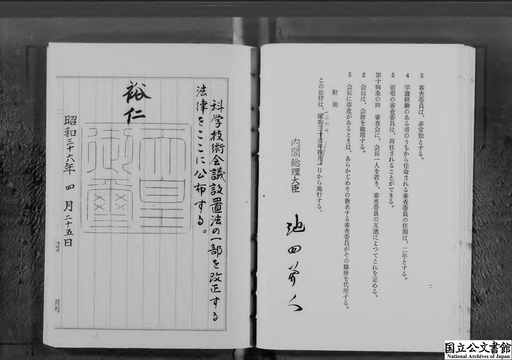 3 審査委員は、非常勤とする。
4 学識経験のある者のうちから任命される審査委員の任期は、二年とする。
5 前項の審査委員は、再任されることができる。
第十四条の四 審査会に、会長一人を置き、審査委員の互選によつてこれを定める。
2 会長は、会務を総理する。
3 会長に事故があるときは、あらかじめその指名する審査委員がその職務を代理する。
附則
この法律は、
日から施行する。
内閣総理大臣
池田勇人
二
科学技術会議設置法の一部を改正する
法律をここに公布する。
裕仁
天皇御璽
昭和三十六年四月二十五日
国立公文書館
National Archives of Japan